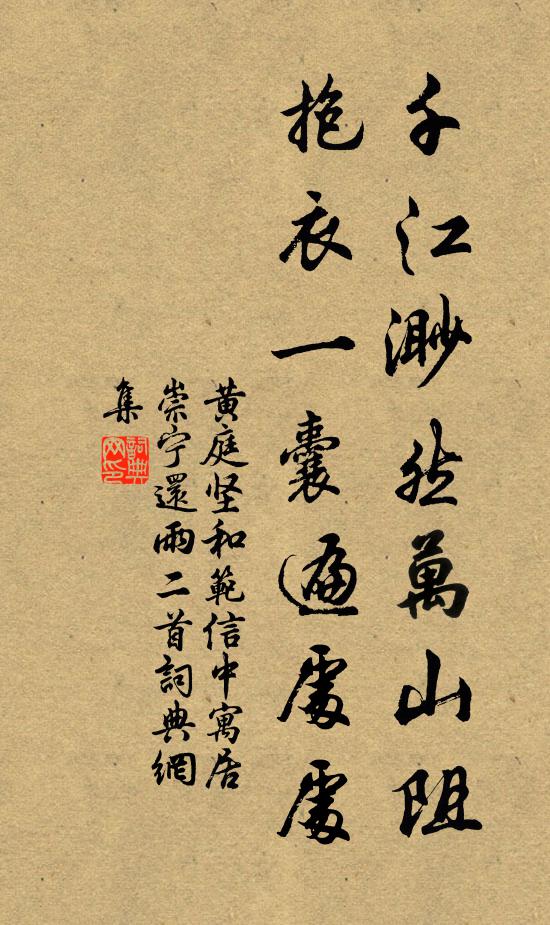 千江渺然萬山阻
抱衣一囊遍處處
黃庭坚和範信中寓居
崇宁還雨二首詞典網
集
詞典網印